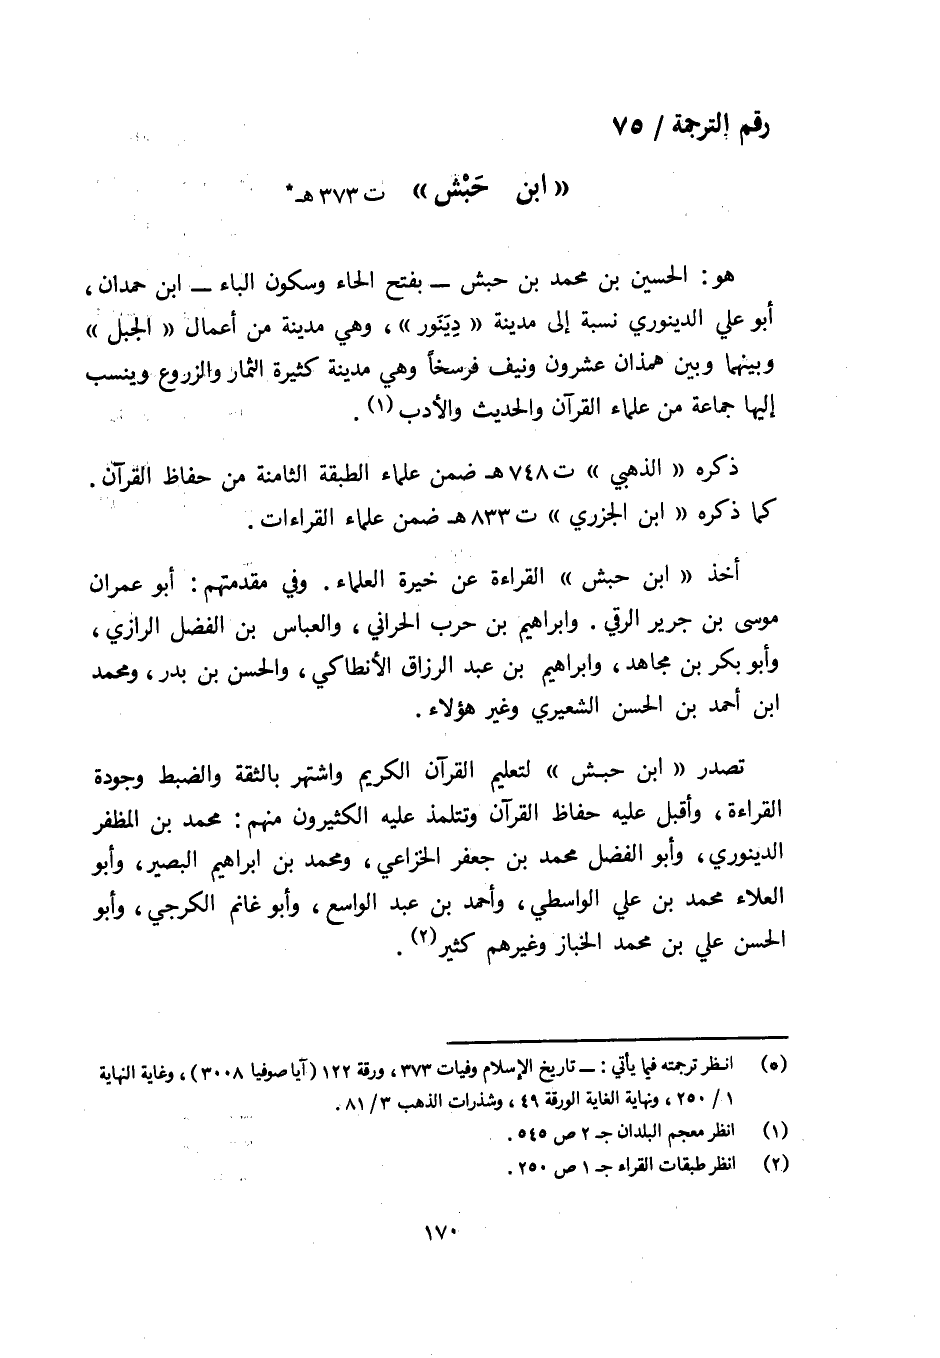 رقم الترجمة / ٧٥
« ابن حَبْش » ت ٣٧٣ هـ*
هو : الحسين بن محمد بن حبش ــ بفتح الحاء وسكون الباء ــ ابن حمدان ،
أبو علي الدينوري نسبة إلى مدينة « دِيَنَور » ، وهي مدينة من أعمال « الجبل »
وبينها وبين همذان عشرون ونيف فرسخاً وهي مدينة كثيرة الثمار والزروع وينسب
إليها جماعة من علماء القرآن والحديث والأدب (١) .
ذكره « الذهبي » ت ٧٤٨ هـ ضمن علماء الطبقة الثامنة من حفاظ القرآن .
كما ذكره « ابن الجزري » ت ٨٣٣ هـ ضمن علماء القراءات .
أخذ « ابن حبش » القراءة عن خيرة العلماء . وفي مقدمتهم : أبو عمران
موسى بن جرير الرقي . وابراهيم بن حرب الحراني ، والعباس بن الفضل الرازي ،
وأبو بكر بن مجاهد ، وابراهيم بن عبد الرزاق الأنطاكي ، والحسن بن بدر ، ومحمد
ابن أحمد بن الحسن الشعيري وغير هؤلاء .
تصدر « ابن حبش » لتعليم القرآن الكريم واشتهر بالثقة والضبط وجودة
القراءة ، وأقبل عليه حفاظ القرآن وتتلمذ عليه الكثيرون منهم : محمد بن المظفر
الدينوري ، وأبو الفضل محمد بن جعفر الخزاعي ، ومحمد بن ابراهيم البصير ، وأبو
العلاء محمد بن علي الواسطي ، وأحمد بن عبد الواسع ، وأبو غانم الكرجي ، وأبو
الحسن علي بن محمد الخباز وغيرهم كثير (٢) .
(*) انظر ترجمته فيما يأتي : ــ تاريخ الإسلام وفيات ٣٧٣ ، ورقة ١٢٢ (آيا صوفيا ٣٠٠٨) ، وغاية النهاية
١ / ٢٥٠ ، ونهاية الغاية الورقة ٤٩ ، وشذرات الذهب ٣ / ٨١ .
(١) انظر معجم البلدان جـ ٢ ص ٥٤٥ .
(٢) انظر طبقات القراء جـ ١ ص ٢٥٠ .
١٧٠